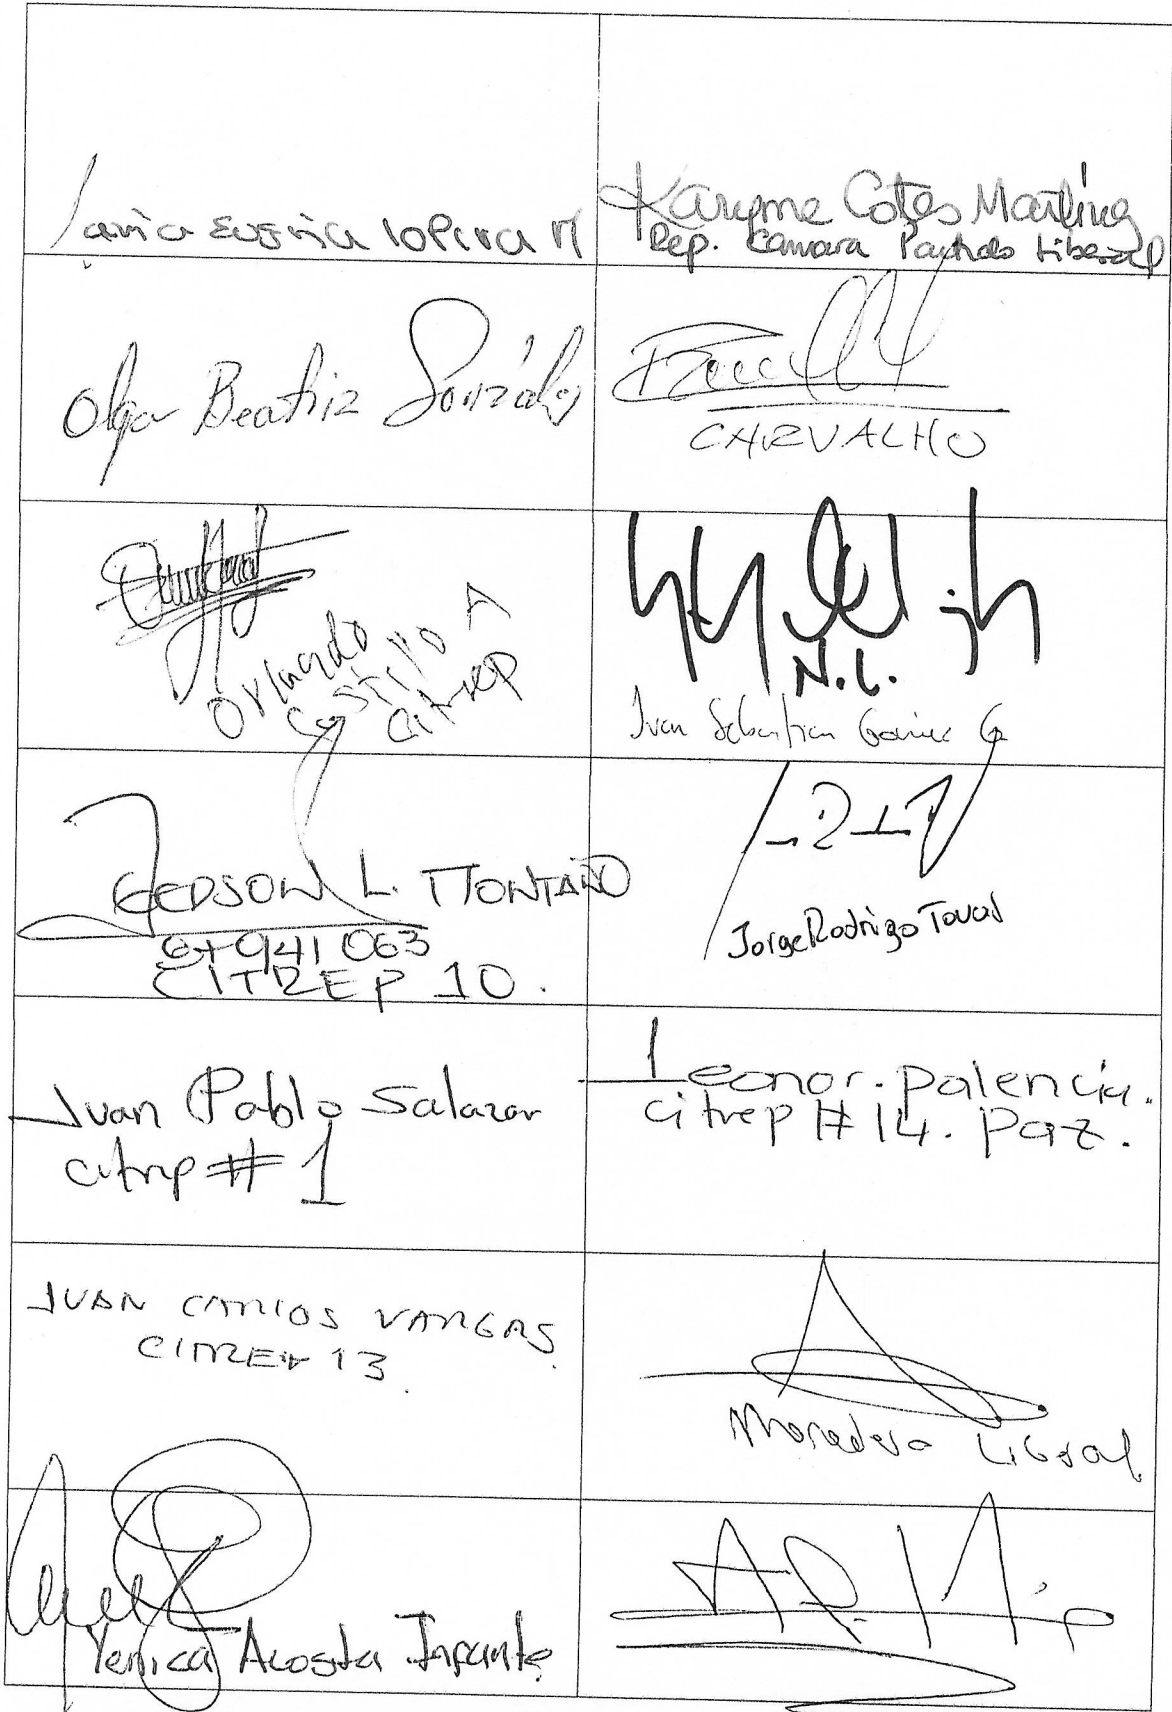 María Eugenia lopera M
Karyme Cotes Martínez
Rep. Cámara Partido Liberal
Olga Beatriz González
CARVALHO
Orlando
Castillo A
Citrep
N.L.
Juan Sebastian Gómez G
GERSON L. MONTAÑO
941 063
CITREP 10.
Jorge Rodrigo Tovar
Juan Pablo Salazar
citrep # 1
Leonor. Palencia.
Citrep # 14. Paz.
JUAN CARLOS VARGAS.
CITREP 13.
Liberal
Yenica Acosta Infante